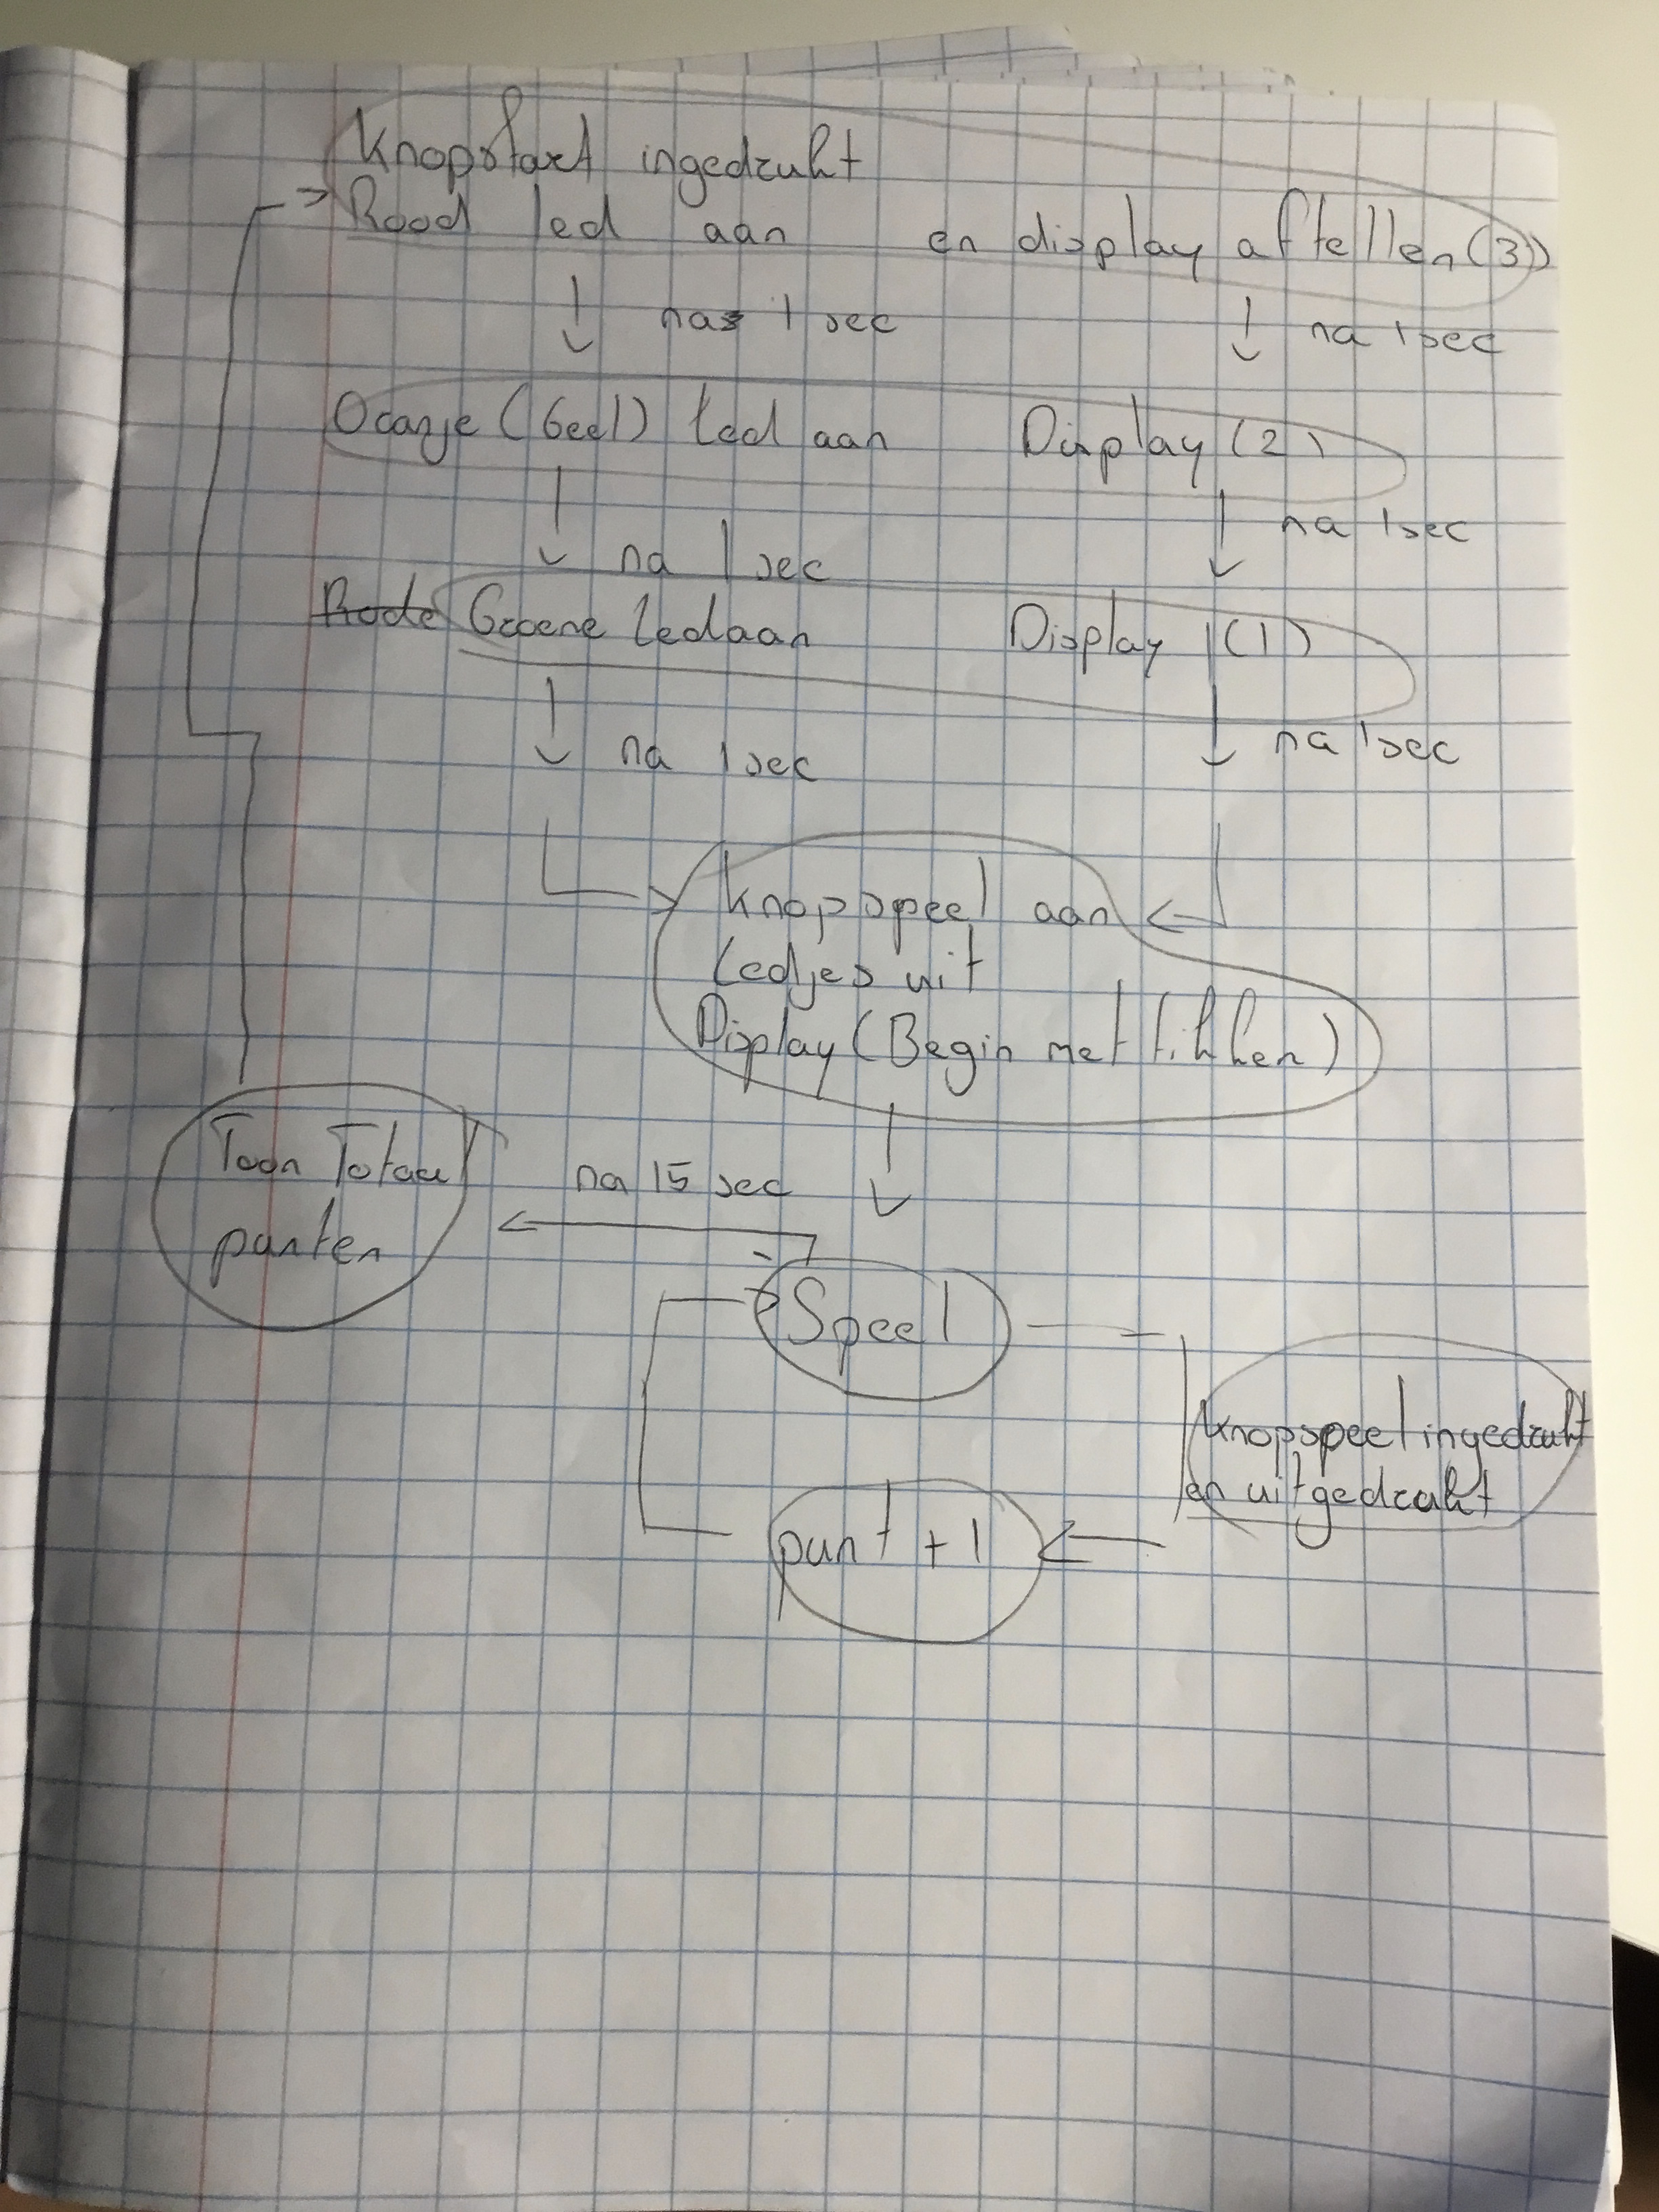 Knopstart ingedrukt
Rood led aan en display aftellen (3)
na 1 sec na 1 sec
Oranje (Geel) led aan Display (2)
na 1 sec na 1 sec
Rode Groene led aan Display (1)
na 1 sec na 1 sec
knopspeel aan
Ledjes uit
Display (Begin met tikken)
Toon Totaal
punten
na 15 sec
Speel
knopspeel ingedrukt
en uitgedrukt
punt +1